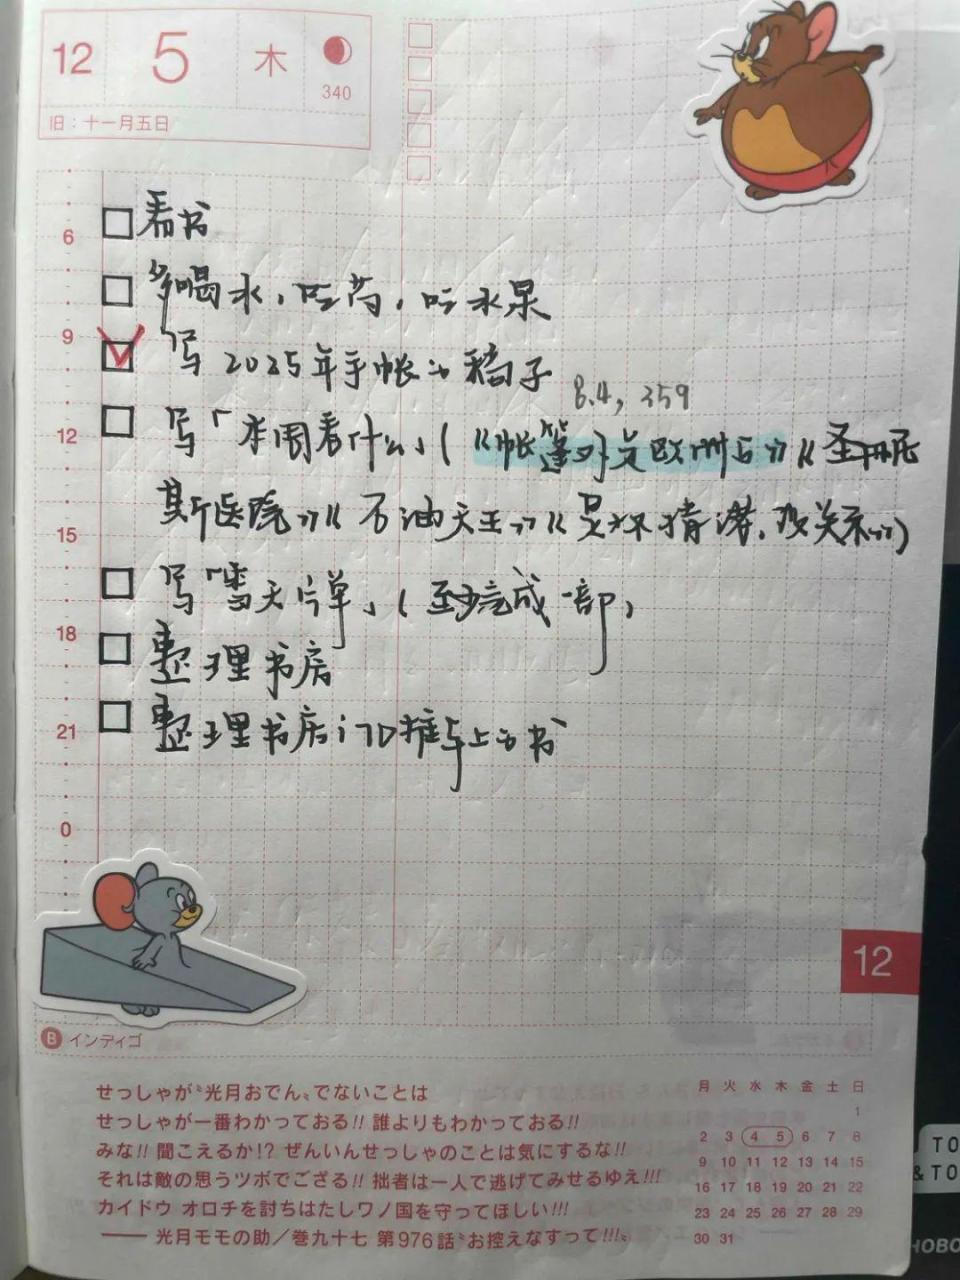 12 5 木
340
旧：十一月五日
6 看书
多喝水，吃药，吃水果
9 写 2025年手帐的稿子
8.4, 359
12 写「本周看什么」(《帐篷外是欧洲占》《圣丹尼
斯医院》《石油大王》《是坏猜潜，没关系》)
15
写「雪天片单」(至少完成一部)
18 整理书房
21 整理书房门口推车上的书
0
B インディゴ
12
せっしゃが〝光月おでん〟でないことは
せっしゃが一番わかっておる!! 誰よりもわかっておる!!
みな!! 聞こえるか!? ぜんいんせっしゃのことは気にするな!!
それは敵の思うツボでござる!! 拙者は一人で逃げてみせるゆえ!!!
カイドウ オロチを討ちはたしワノ国を守ってほしい!!!
—— 光月モモの助／巻九十七 第976話〝お控えなすって!!!〟
月 火 水 木 金 土 日
1
2 3 4 5 6 7 8
9 10 11 12 13 14 15
16 17 18 19 20 21 22
23 24 25 26 27 28 29
30 31
TO
& TO
HOBO